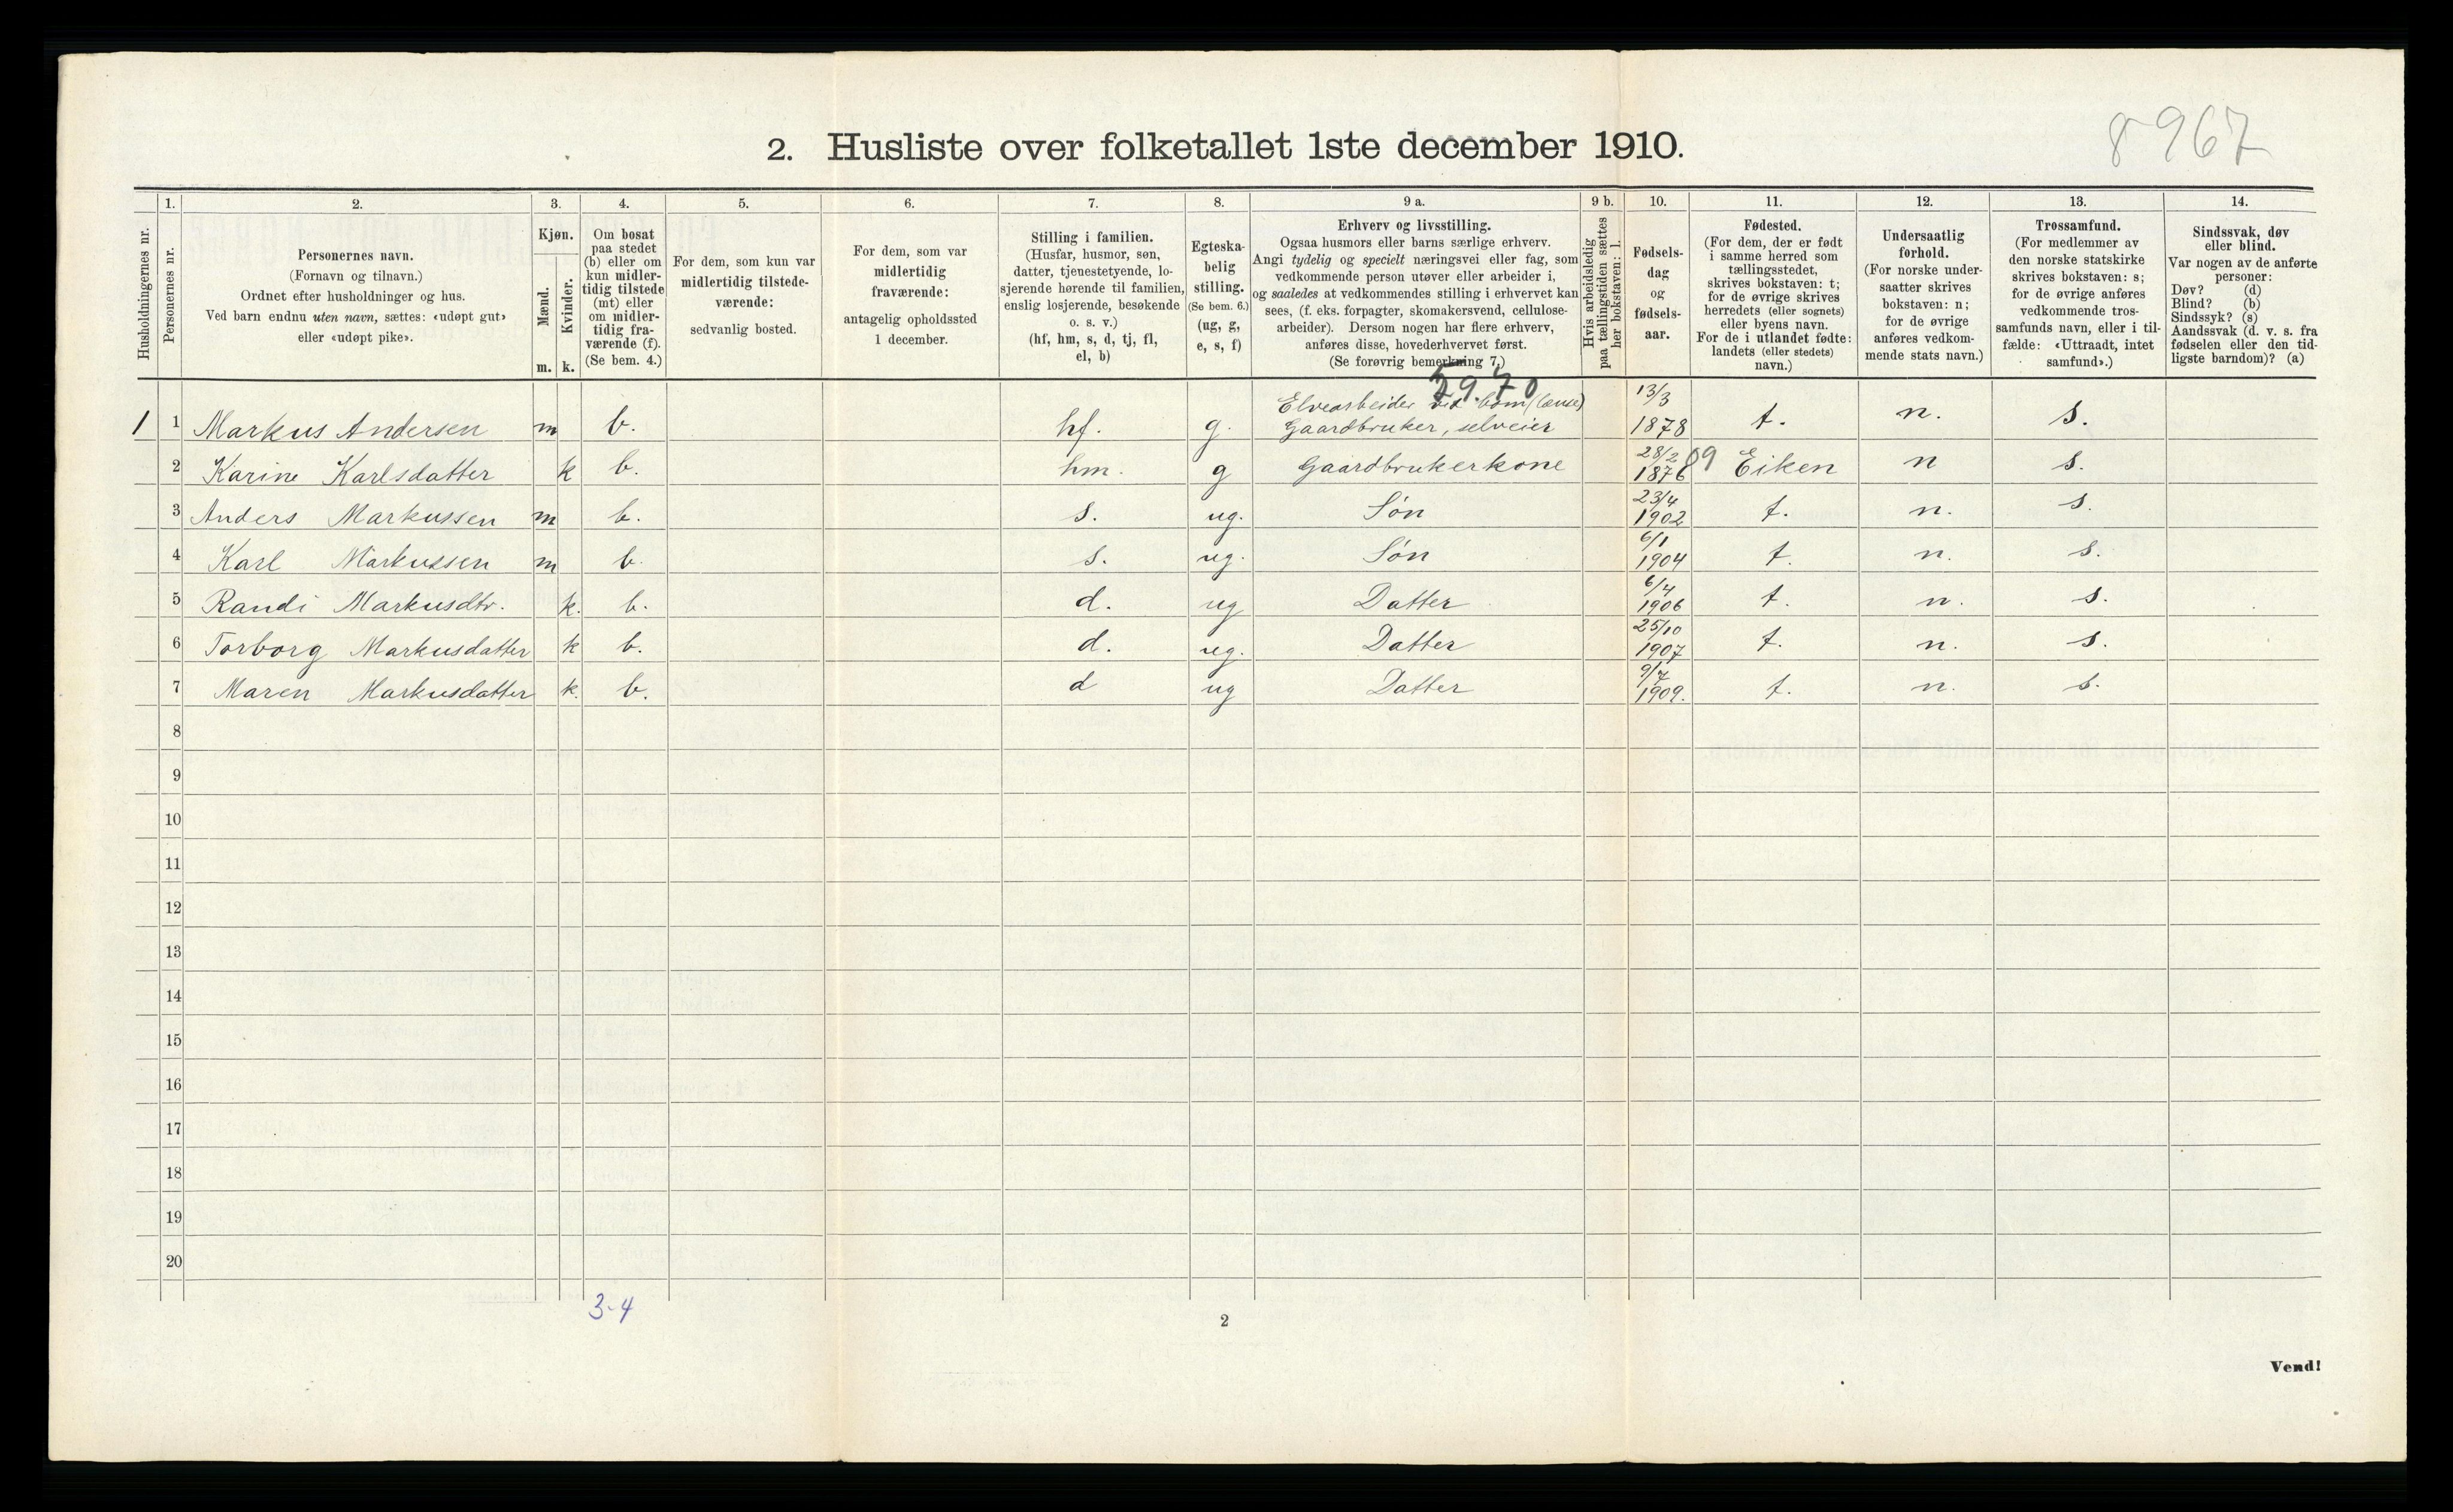 8967
2. Husliste over folketallet 1ste december 1910.
Husholdningernes nr.
1. 2. 3. 4. 5. 6. 7. 8. 9 a. 9 b. 10. 11. 12. 13. 14.
Personernes nr.
Personernes navn.
(Fornavn og tilnavn.)
Ordnet efter husholdninger og hus.
Ved barn endnu uten navn, sættes: «udøpt gut»
eller «udøpt pike».
Kjøn.
Mænd.
Kvinder.
m. k.
Om bosat
paa stedet
(b) eller om
kun midler-
tidig tilstede
(mt) eller
om midler-
tidig fra-
værende (f).
(Se bem. 4.)
For dem, som kun var
midlertidig tilstede-
værende:
sedvanlig bosted.
For dem, som var
midlertidig
fraværende:
antagelig opholdssted
1 december.
Stilling i familien.
(Husfar, husmor, søn,
datter, tjenestetyende, lo-
sjerende hørende til familien,
enslig losjerende, besøkende
o. s. v.)
(hf, hm, s, d, tj, fl,
el, b)
Egteska-
belig
stilling.
(Se bem. 6.)
(ug, g,
e, s, f)
Erhverv og livsstilling.
Ogsaa husmors eller barns særlige erhverv.
Angi tydelig og specielt næringsvei eller fag, som
vedkommende person utøver eller arbeider i,
og saaledes at vedkommendes stilling i erhvervet kan
sees, (f. eks. forpagter, skomakersvend, cellulose-
arbeider). Dersom nogen har flere erhverv,
anføres disse, hovederhvervet først.
(Se forøvrig bemerkning 7.)
Hvis arbeidsledig
paa tællingstiden sættes
her bokstaven: l.
Fødsels-
dag
og
fødsels-
aar.
Fødested.
(For dem, der er født
i samme herred som
tællingsstedet,
skrives bokstaven: t;
for de øvrige skrives
herredets (eller sognets)
eller byens navn.
For de i utlandet fødte:
landets (eller stedets)
navn.)
Undersaatlig
forhold.
(For norske under-
saatter skrives
bokstaven: n;
for de øvrige
anføres vedkom-
mende stats navn.)
Trossamfund.
(For medlemmer av
den norske statskirke
skrives bokstaven: s;
for de øvrige anføres
vedkommende tros-
samfunds navn, eller i til-
fælde: «Uttraadt, intet
samfund».)
Sindssvak, døv
eller blind.
Var nogen av de anførte
personer:
Døv? (d)
Blind? (b)
Sindssyk? (s)
Aandssvak (d. v. s. fra
fødselen eller den tid-
ligste barndom)? (a)
59.70
Elvearbeider ved bom (lænse) 13/3
1 1 Markus Andersen m b. hf. g. Gaardbruker, selveier 1878 t. n. s.
28/2
2 Karine Karlsdatter k b. hm. g Gaardbrukerkone 1876 09 Eiken n s.
23/4
3 Anders Markussen m b. s. ug. Søn 1902 t. n. s.
6/1
4 Karl Markussen m b. s. ug. Søn 1904 t. n. s.
6/4
5 Randi Markusdtr. k. b. d. ug Datter 1906 t. n. s.
25/10
6 Torborg Markusdatter k b. d. ug. Datter 1907 t. n. s.
9/7
7 Maren Markusdatter k. b. d ug Datter 1909. t. n. s.
8
9
10
11
12
13
14
15
16
17
18
19
20
3-4
2
Vend!